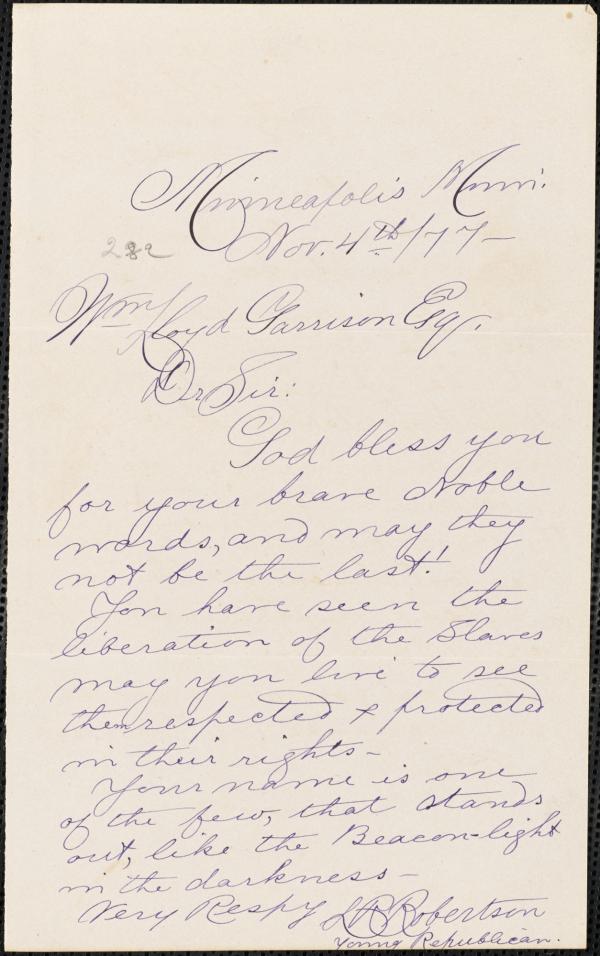 Minneapolis Minn.
Nov. 4th/77-
282
Wm Lloyd Garrison Esq.
Dr Sir:
God bless you
for your brave noble
words, and may they
not be the last!
You have seen the
liberation of the Slaves
may you live to see
them respected & protected
in their rights-
Your name is one
of the few, that stands
out, like the Beacon-light
in the darkness-
Very Respy L R Robertson
Young Republican.